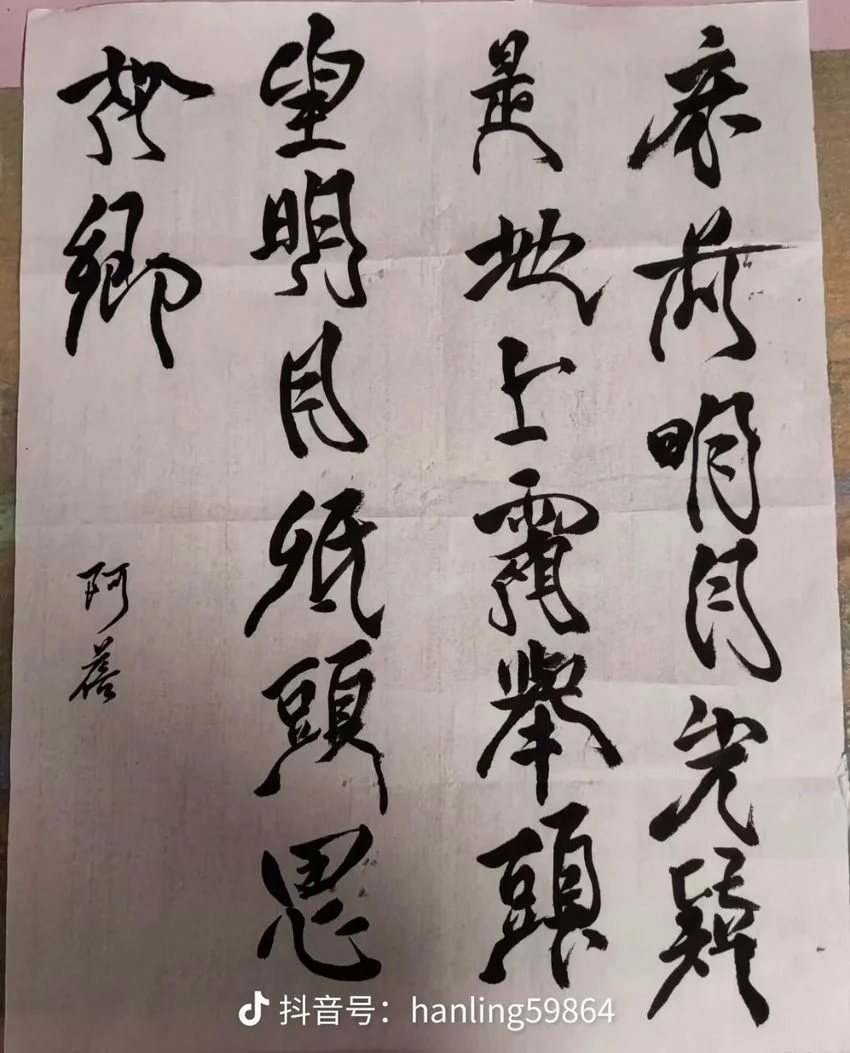 床前明月光疑
是地上霜舉頭
望明月低頭思
故鄉
阿蓉
抖音号：hanling59864